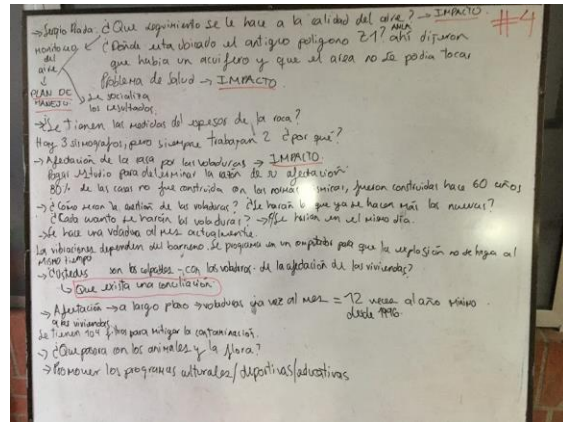 → Sergio Prada. ¿Que seguimiento se le hace a la calidad del aire? → IMPACTO.
#4
monitoreo del aire
PLAN DE MANEJO
¿Donde esta ubicado el antiguo poligono Z1? ANLA ahi dijeron
que habia un acuifero y que el area no se podia tocar
Problema de Salud → IMPACTO
Se socializa
los resultados.
→ ¿Se tienen las medidas del espesor de la roca?
Hay 3 sismografos, pero siempre trabajan 2 ¿por qué?
→ Afectación de la casa por las voladuras → IMPACTO.
Pagar estudio para determinar la razón de su afectación.
80% de las casas no fue construida con las normas sismicas, fueron construidas hace 60 años
→ ¿Cómo seran la gestión de las voladuras? ¿Se harán lo que ya se hacen más las nuevas?
¿Cada cuanto se harán las voladuras? → Se harian en el mismo día.
→ Se hace una voladura al mes actualmente.
La vibraciones dependen del barreno. Se programa en un computador para que la explosión no se haga al
mismo tiempo
→ ¿Ustedes son los culpables con las voladuras de la afectación de las viviendas?
↳ Que exista una conciliación
→ Afectación → a largo plazo → voladuras una vez al mes = 12 veces al año mínimo
a las viviendas. desde 1996.
Se tienen 104 filtros para mitigar la contaminación.
→ ¿Que pasara con los animales y la flora?
→ Promover los programas culturales/deportivas/educativas